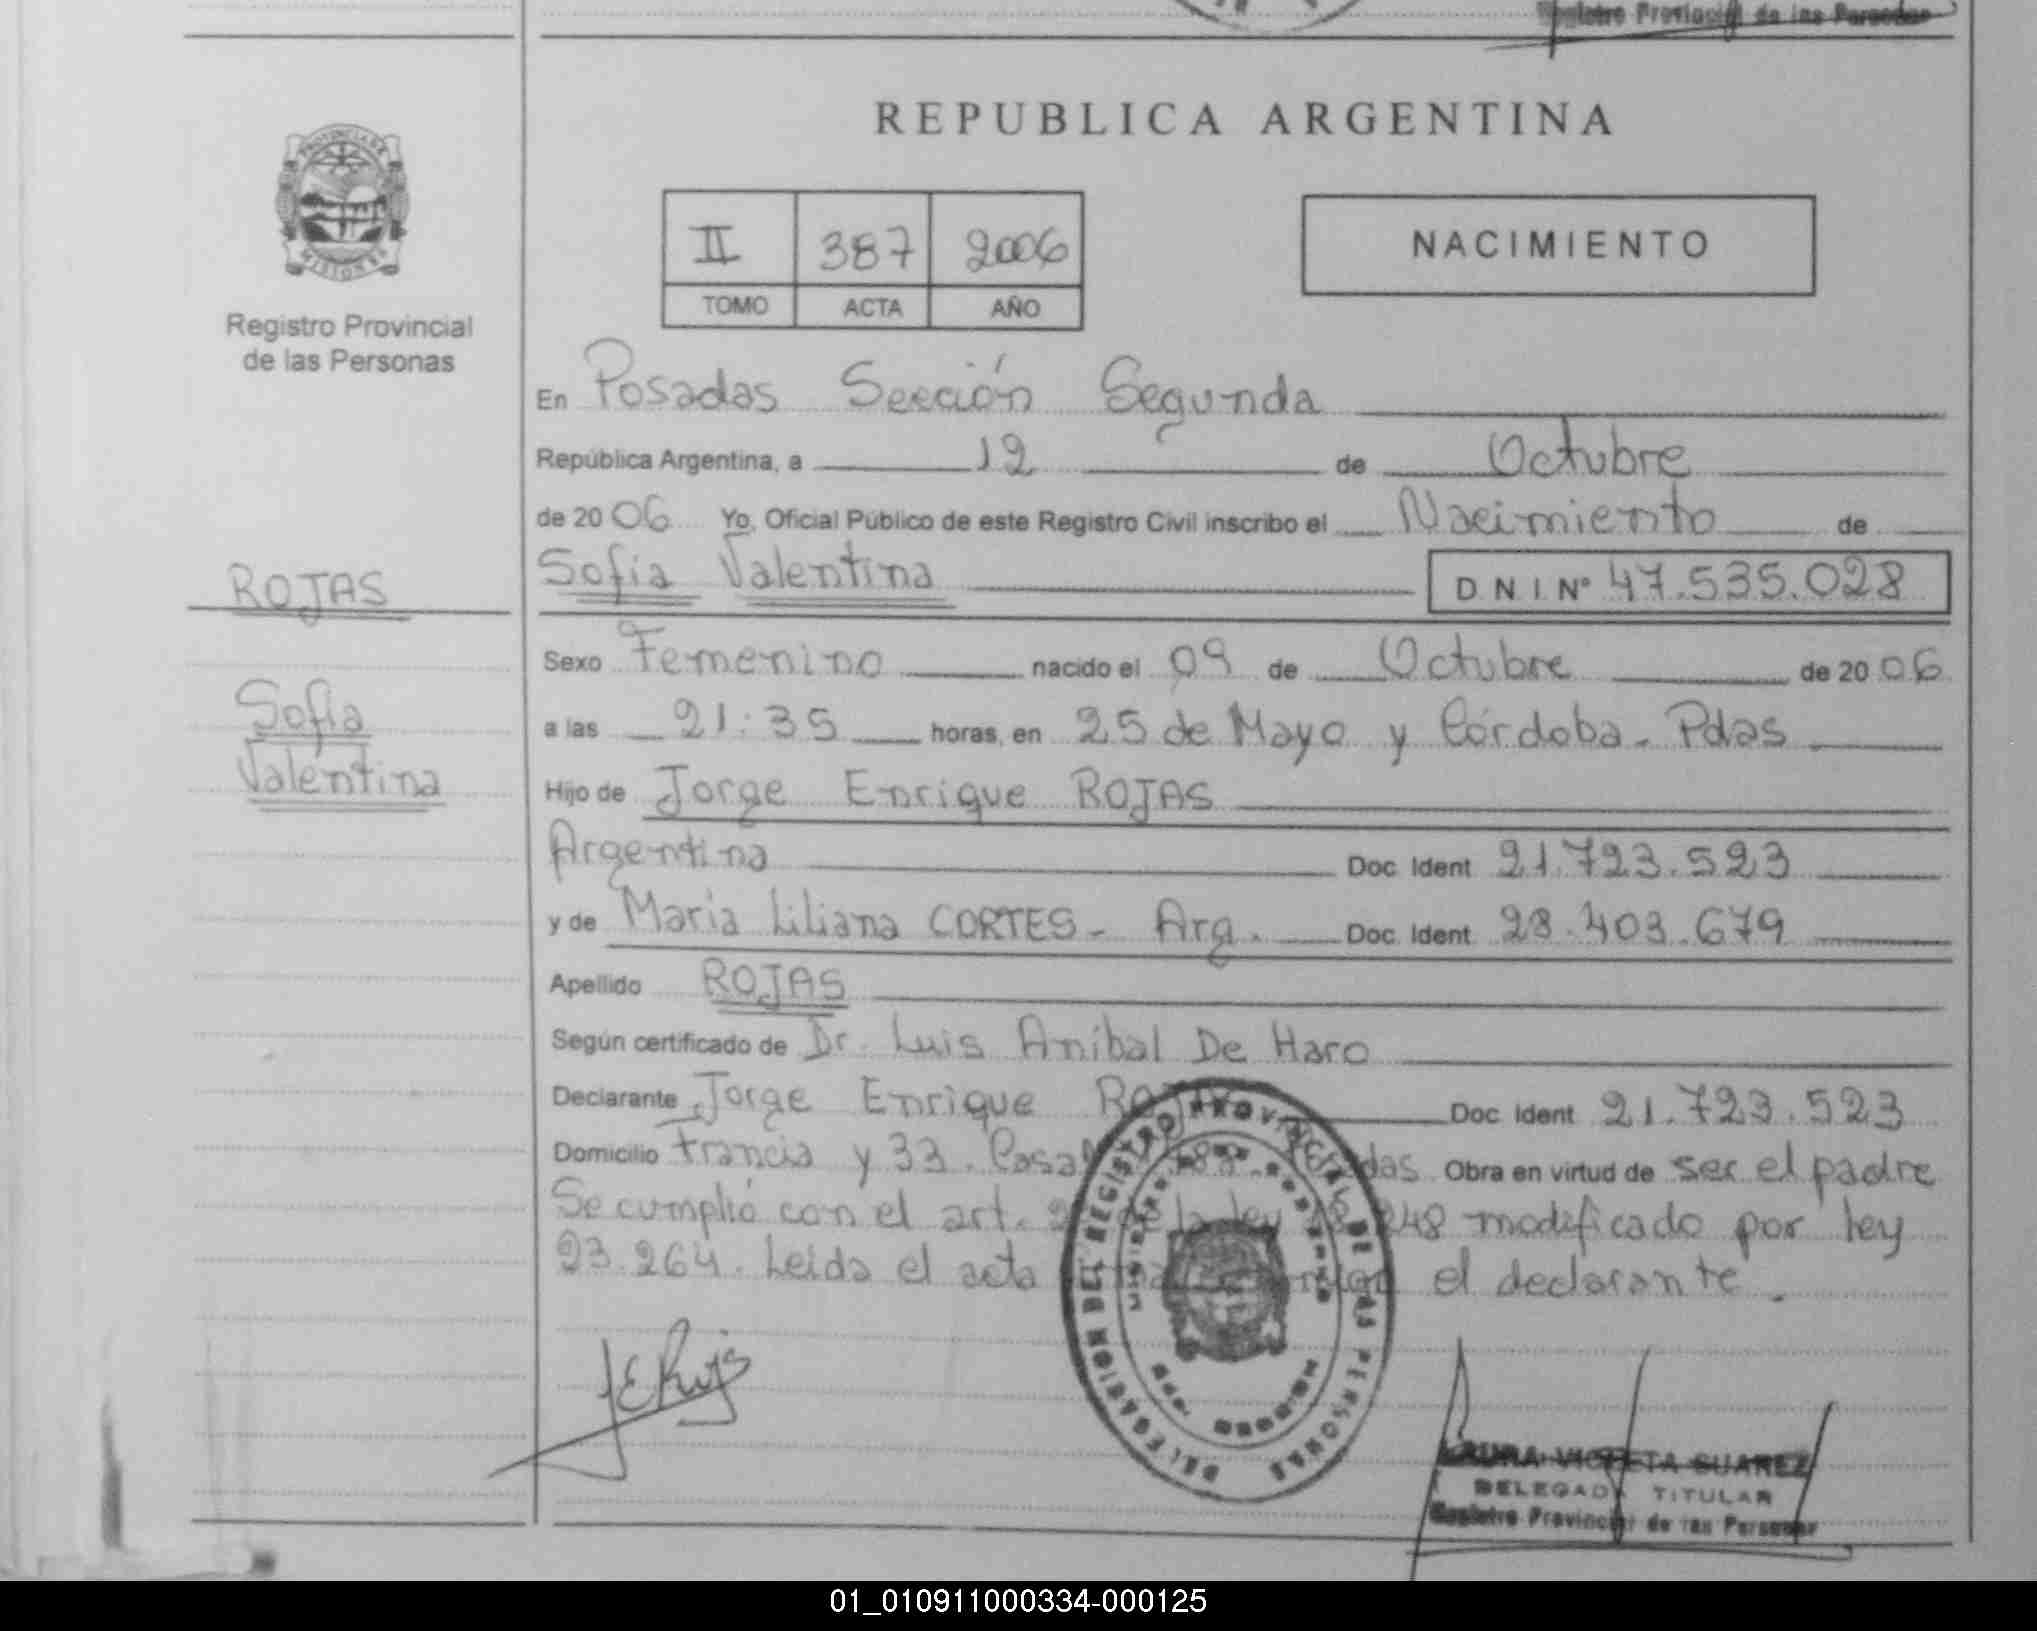 Registro Provincial de las Personas
REPUBLICA ARGENTINA
PROVINCIA DE
MISIONES
Registro Provincial
de las Personas
II 387 2006
TOMO ACTA AÑO
NACIMIENTO
En Posadas Sección Segunda
República Argentina, a 12 de Octubre
de 2006 Yo, Oficial Público de este Registro Civil inscribo el Nacimiento de
ROJAS
Sofia Valentina
Sofía Valentina D N I Nº 47.535.028
Sexo Femenino nacido el 09 de Octubre de 2006
a las 21:35 horas, en 25 de Mayo y Córdoba - Pdas
Hijo de Jorge Enrique ROJAS
Argentina Doc. Ident 21.723.523
y de María Liliana CORTES - Arg. Doc. Ident 28.403.679
Apellido ROJAS
Según certificado de Dr. Luis Aníbal De Haro
Declarante Jorge Enrique ROJAS Doc Ident 21.723.523
Domicilio Francia y 33. Posadas. Obra en virtud de ser el padre
Se cumplió con el art. de la ley 248 modificado por ley
23.264. Leída el acta el declarante.
JERojas
DELEGACION DEL REGISTRO PROVINCIAL DE LAS PERSONAS
LAURA VIOLETA SUAREZ
DELEGADA TITULAR
Registro Provincial de las Personas
01_010911000334-000125